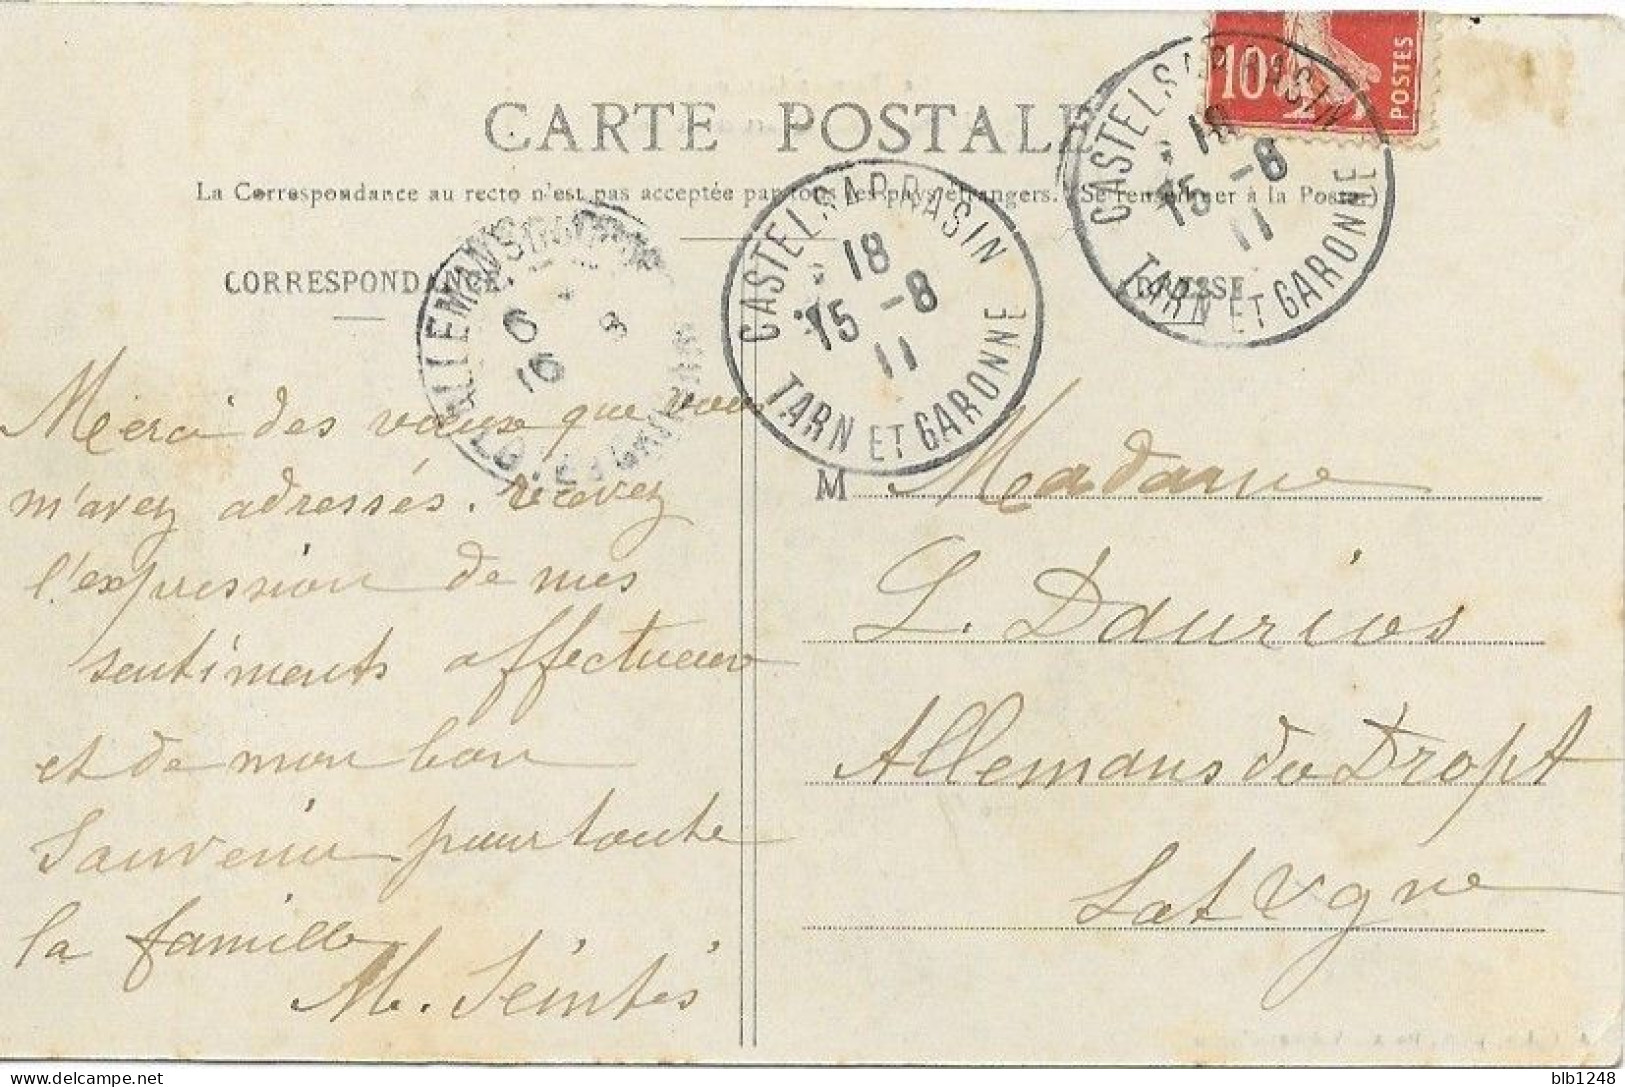 CARTE POSTALE
La Correspondance au recto n'est pas acceptée par tous les pays étrangers. (Se renseigner à la Poste)
CORRESPONDANCE
ADRESSE
10c
POSTES
CASTELSARRASIN
18
15 -8
11
TARN ET GARONNE
CASTELSARRASIN
18
15 -8
11
TARN ET GARONNE
ALLEMANS
6
16 8
Merci des vœux que vous
m'avez adressés. recevez
l'expression de mes
sentiments affectueux
et de mon bon
Souvenir pour toute
la famille
M. Seintés
M Madame
L. Daurios
Allemans du Dropt
Lot & Gne
blb1248